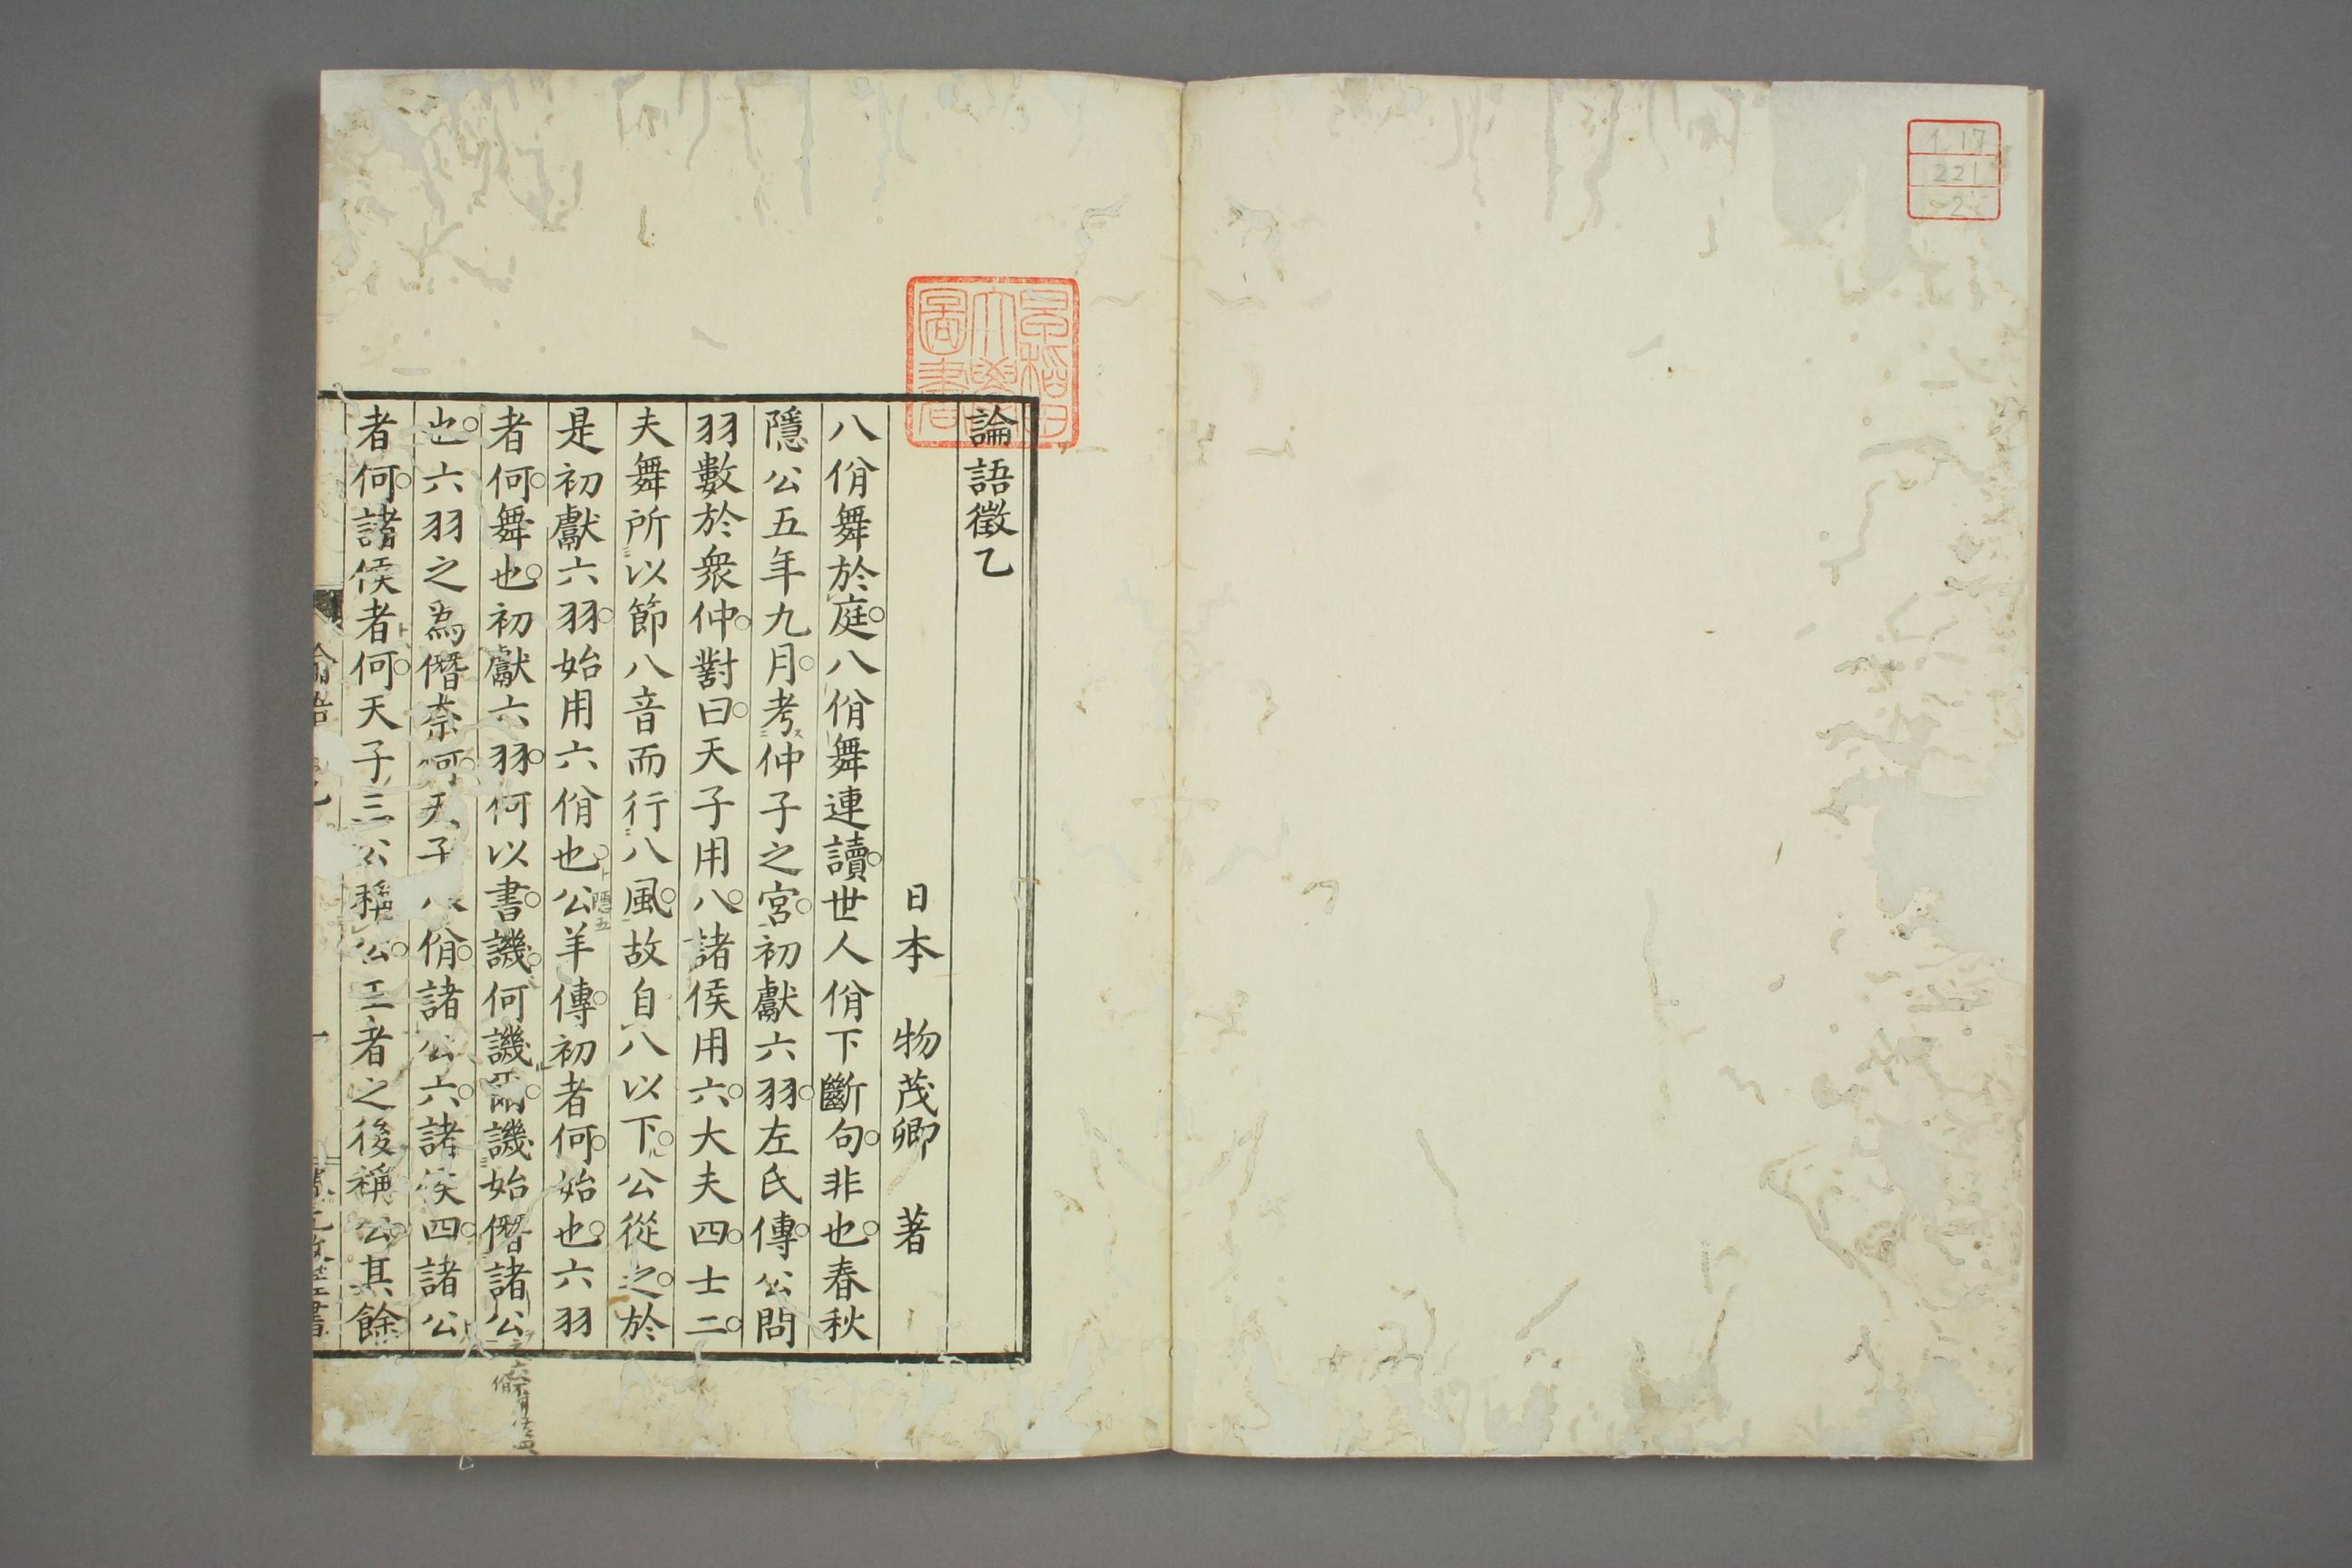 1 17
221
2
論語徵乙
日本 物茂卿 著
八佾舞於庭八佾舞連讀世人佾下斷句非也春秋
隱公五年九月考仲子之宮初獻六羽左氏傳公問
羽數於衆仲對曰天子用八諸侯用六大夫四士二
夫舞所以節八音而行八風故自八以下公從之於
是初獻六羽始用六佾也公羊傳初者何始也六羽
隱五
者何舞也初獻六羽何以書譏何譏爾譏始僭諸公
也六羽之爲僭奈何天子八佾諸公六諸侯四諸公
者何諸侯者何天子三公稱公王者之後稱公其餘